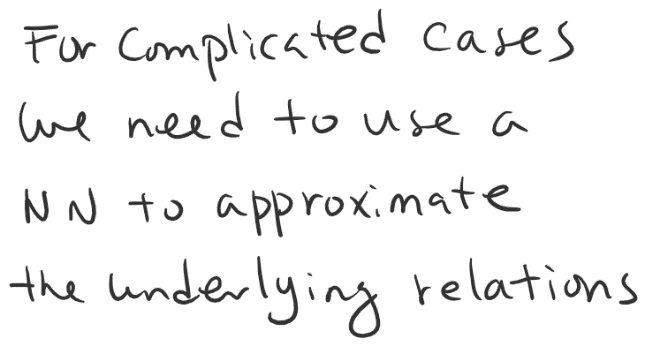 For Complicated cases
we need to use a
NN to approximate
the underlying relations